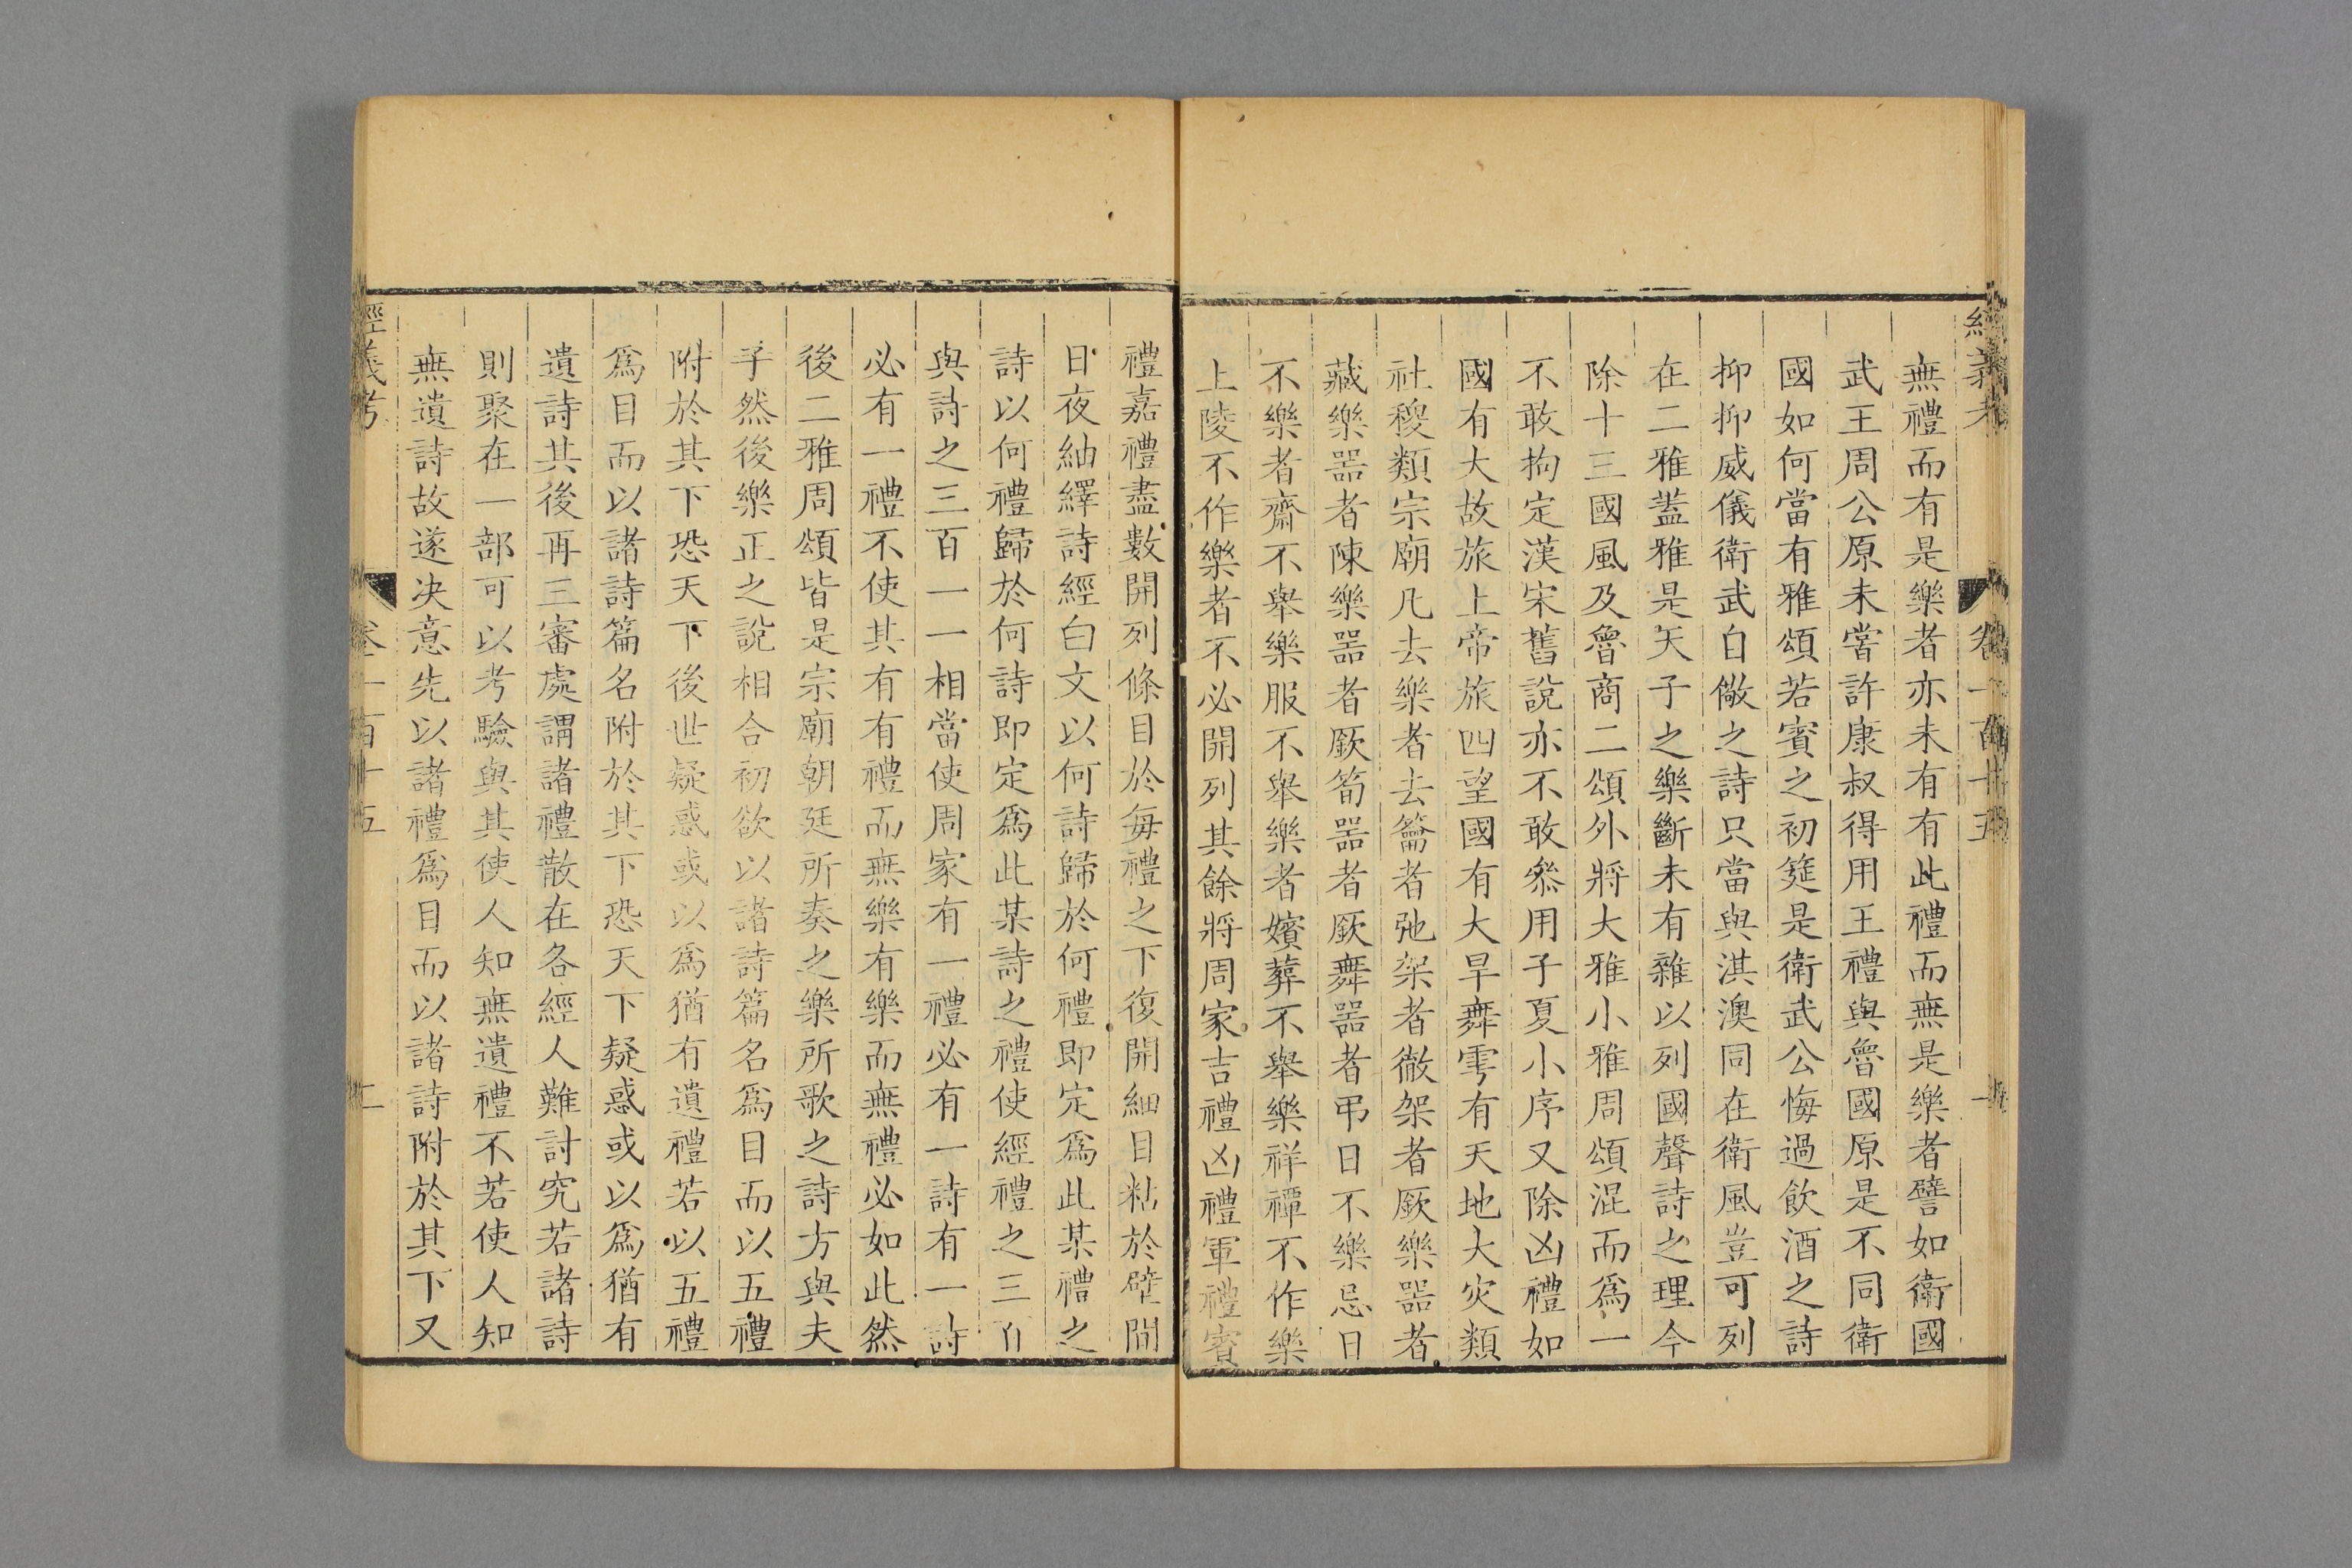 經義考
卷一百十五
無禮而有是樂者亦未有有此禮而無是樂者譬如衛國
武王周公原未嘗許康叔得用王禮與魯國原是不同衛
國如何當有雅頌若賓之初筵是衛武公悔過飲酒之詩
抑抑威儀衛武自儆之詩只當與淇澳同在衛風豈可列
在二雅蓋雅是天子之樂斷未有雜以列國聲詩之理今
除十三國風及魯商二頌外將大雅小雅周頌混而爲一
不敢拘定漢宋舊說亦不敢叅用子夏小序又除凶禮如
國有大故旅上帝旅四望國有大旱舞雩有天地大灾類
社稷類宗廟凡去樂者去籥者弛架者徹架者厥樂噐者
藏樂噐者陳樂噐者厥筍噐者厥舞噐者弔日不樂忌日
不樂者齋不舉樂服不舉樂者嬪葬不舉樂祥禫不作樂
上陵不作樂者不必開列其餘將周家吉禮凶禮軍禮賓
禮嘉禮盡數開列條目於每禮之下復開細目粘於壁間
日夜紬繹詩經白文以何詩歸於何禮即定爲此某禮之
詩以何禮歸於何詩即定爲此某詩之禮使經禮之三百
與詩之三百一一相當使周家有一禮必有一詩有一詩
必有一禮不使其有有禮而無樂有樂而無禮必如此然
後二雅周頌皆是宗廟朝廷所奏之樂所歌之詩方與夫
子然後樂正之說相合初欲以諸詩篇名爲目而以五禮
附於其下恐天下後世疑惑或以爲猶有遺禮若以五禮
爲目而以諸詩篇名附於其下恐天下疑惑或以爲猶有
遺詩其後再三審處謂諸禮散在各經人難討究若諸詩
則聚在一部可以考驗與其使人知無遺禮不若使人知
無遺詩故遂决意先以諸禮爲目而以諸詩附於其下又
經義考
卷一百十五
二